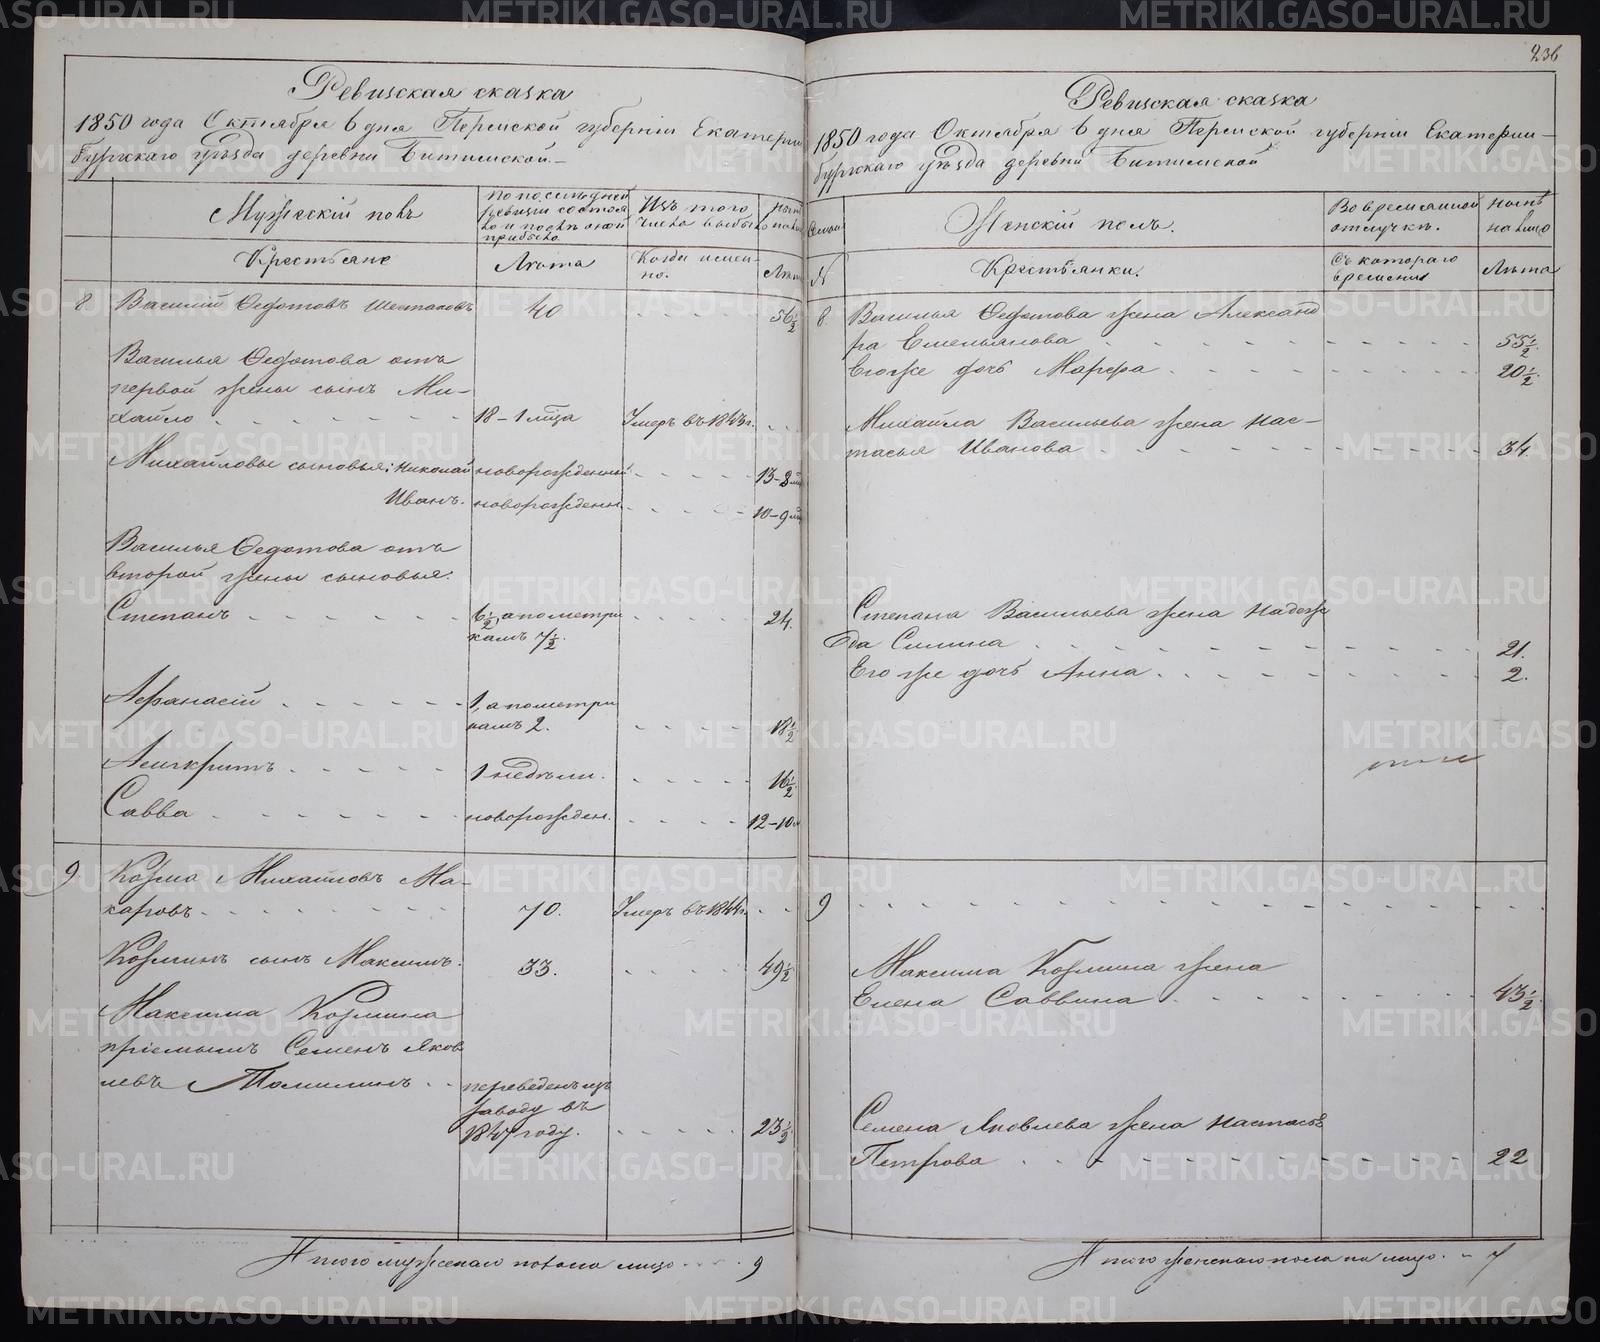 Ревизская сказка
1850 года Октября 6 дня Пермской губернiи Екатерин
бургскаго уѣзда деревни Битимской.
Мужескiй полъ
По послѣдней ревизiи состояло и послѣ оной прибыло
Изъ того числа выбыло
Крестьяне
Лѣта
Когда именно.
Лѣта
8 Василiй Федотовъ Шестаковъ 40 56½
Василья Федотова отъ
первой жены сынъ Ми-
хайло 18 – 1 мѣсяца Умеръ въ 1843 г.
Михайловы сыновья: Николай новорожденный 13–8 мѣ
Иванъ. новорожден. 10–9 мѣ
Василья Федотова отъ
второй жены сыновья:
Степанъ 6½, а по метри 24.
камъ 7½.
Афанасiй 1, а по метри
камъ 2. 18½
Асигкритъ 1 недѣли. 16½
Савва новорожден. 12–10 м
9 Козма Михайловъ Ма-
каровъ 70. Умеръ въ 1844 г.
Козминъ сынъ Максимъ. 33. 49½
Максима Козмина
прiемышъ Семенъ Яков
левъ Томилинъ переведенъ изъ
заводу въ
1847 году. 23½
Итого мужескаго пола на лицо 9
236
Ревизская сказка
1850 года Октября 6 дня Пермской губернiи Екатерин-
бургскаго уѣзда деревни Битимской
Семьи
Женскiй полъ.
Во временной отлучкѣ.
Нынѣ на лицо
№
Крестьянки.
Съ котораго времени
Лѣта
8. Василья Федотова жена Александ
ра Емельянова 55½.
Его же дочь Марфа 20½.
Михайла Васильева жена Нас-
тасья Иванова 34.
Степана Васильева жена Надеж
да Силина 21.
Его же дочь Анна 2.
9
Максима Козмина жена
Елена Саввина 43½
Семена Яковлева жена Настасья
Петрова 22
Итого женскаго пола на лицо 7
METRIKI.GASO-URAL.RU